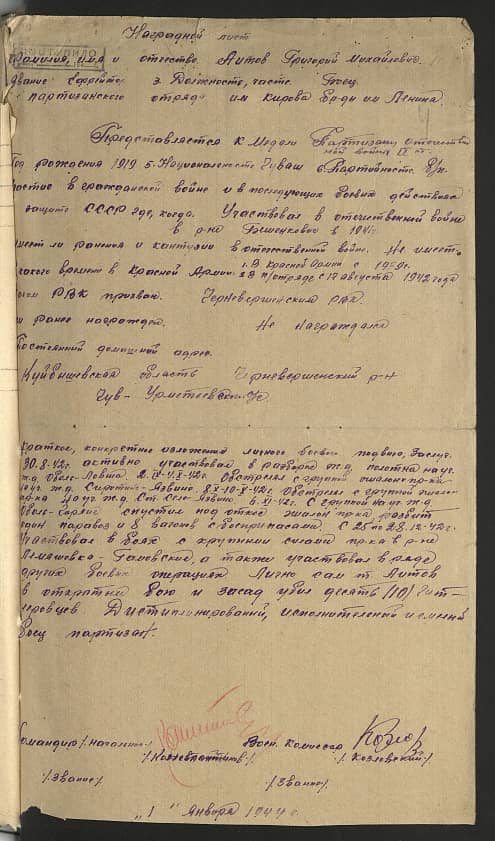 Наградной лист
Фамилия, имя и отчество Аитов Григорий Михайлович.
Звание Ефрейтор 3. Должность, часть. Боец
партизанского отряда им Кирова Бр-ди им Ленина.
Представляется к Медали Партизану отечествен
ной войны II ст.
Год рождения 1919 5. Национальность Чуваш 6 Партийность б/п.
участие в гражданской войне и в последующих боевых действиях
защите СССР где, когда. Участвовал в отечественной войне
в р-не Бешенковичи в 1941г.
Имеет ли ранения и контузии в отечественной войне. Не имеет.
какого времени в Красной Армии. 1. В Красной Армии с
2 В п/отряде с 17 августа 1942 года
каким РВК призван. Черневершенским рвк
ранее награжден. Не награждался
Постоянный домашний адрес.
Куйбышевская область Черневершенский р-н
Чув-
Краткое, конкретное изложение личного боевого подвига, заслуг.
30.8-42г. активно участвовал в разборке ж.д. полотна на уч.
ж.д. Оболь-Ловша. Обстрелял с группой эшелон пр-ка
на уч. ж.д. Сиротино-Язвино 8 IX-10-X-42г. Обстрелял с группой эшелон
пр-ка на уч. ж.д. Ст. Село-Язвино 6-XI-42г. С группой на уч ж.д
Оболь- спустил под откос эшелон пр-ка разбит
один паравоз и 8 вагонов с боеприпасами. С 25 по 28.12-42г.
Участвовал в боях с крупными силами пр-ка в р-не
а также участвовал в ряде
других боевых операциях Лично сам т Аитов
в открытом бою и засад убил десять /10/ Гит-
леровцев. Дистиплинирований, исполнительной и смелый
боец партизан.
Командир /Начальник/ Воен. Комиссар
/Константинов/ /Козловский/
/Звание/ /Звание/
"1" Января 1944г.